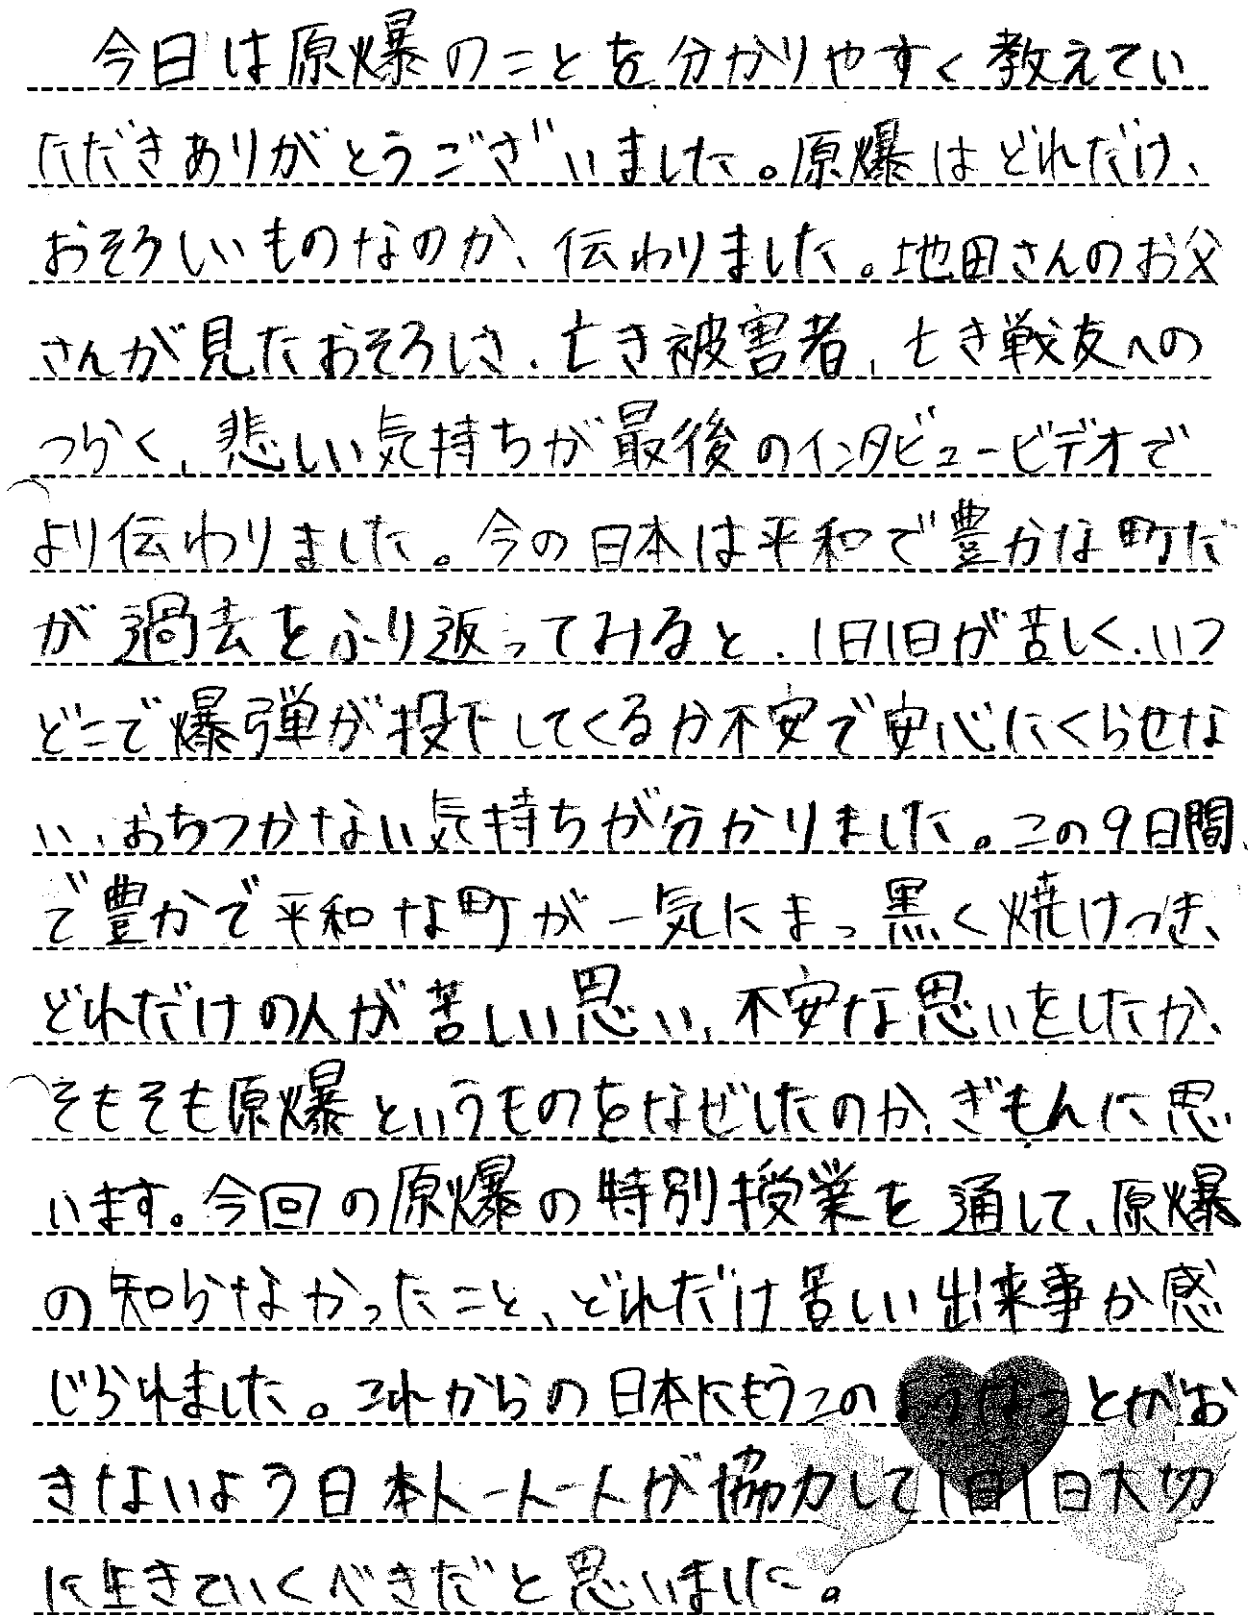 今日は原爆のことを分かりやすく教えてい
ただきありがとうございました。原爆はどれだけ、
おそろしいものなのか、伝わりました。地田さんのお父
さんが見たおそろしさ、亡き被害者、亡き戦友への
つらく、悲しい気持ちが最後のインタビュービデオで
より伝わりました。今の日本は平和で豊かな町だ
が過去をふり返ってみると、1日1日が苦しく、いつ
どこで爆弾が投下してくるか不安で安心にくらせな
い、おちつかない気持ちが分かりました。この9日間
で豊かで平和な町が一気にまっ黒く焼けつき、
どれだけの人が苦しい思い、不安な思いをしたか、
そもそも原爆というものをなぜしたのか、ぎもんに思
います。今回の原爆の特別授業を通して、原爆
の知らなかったこと、どれだけ苦しい出来事か感
じられました。これからの日本にもうこのようなことがお
きないよう日本人一人一人が協力して1日1日大切
に生きていくべきだと思いました。